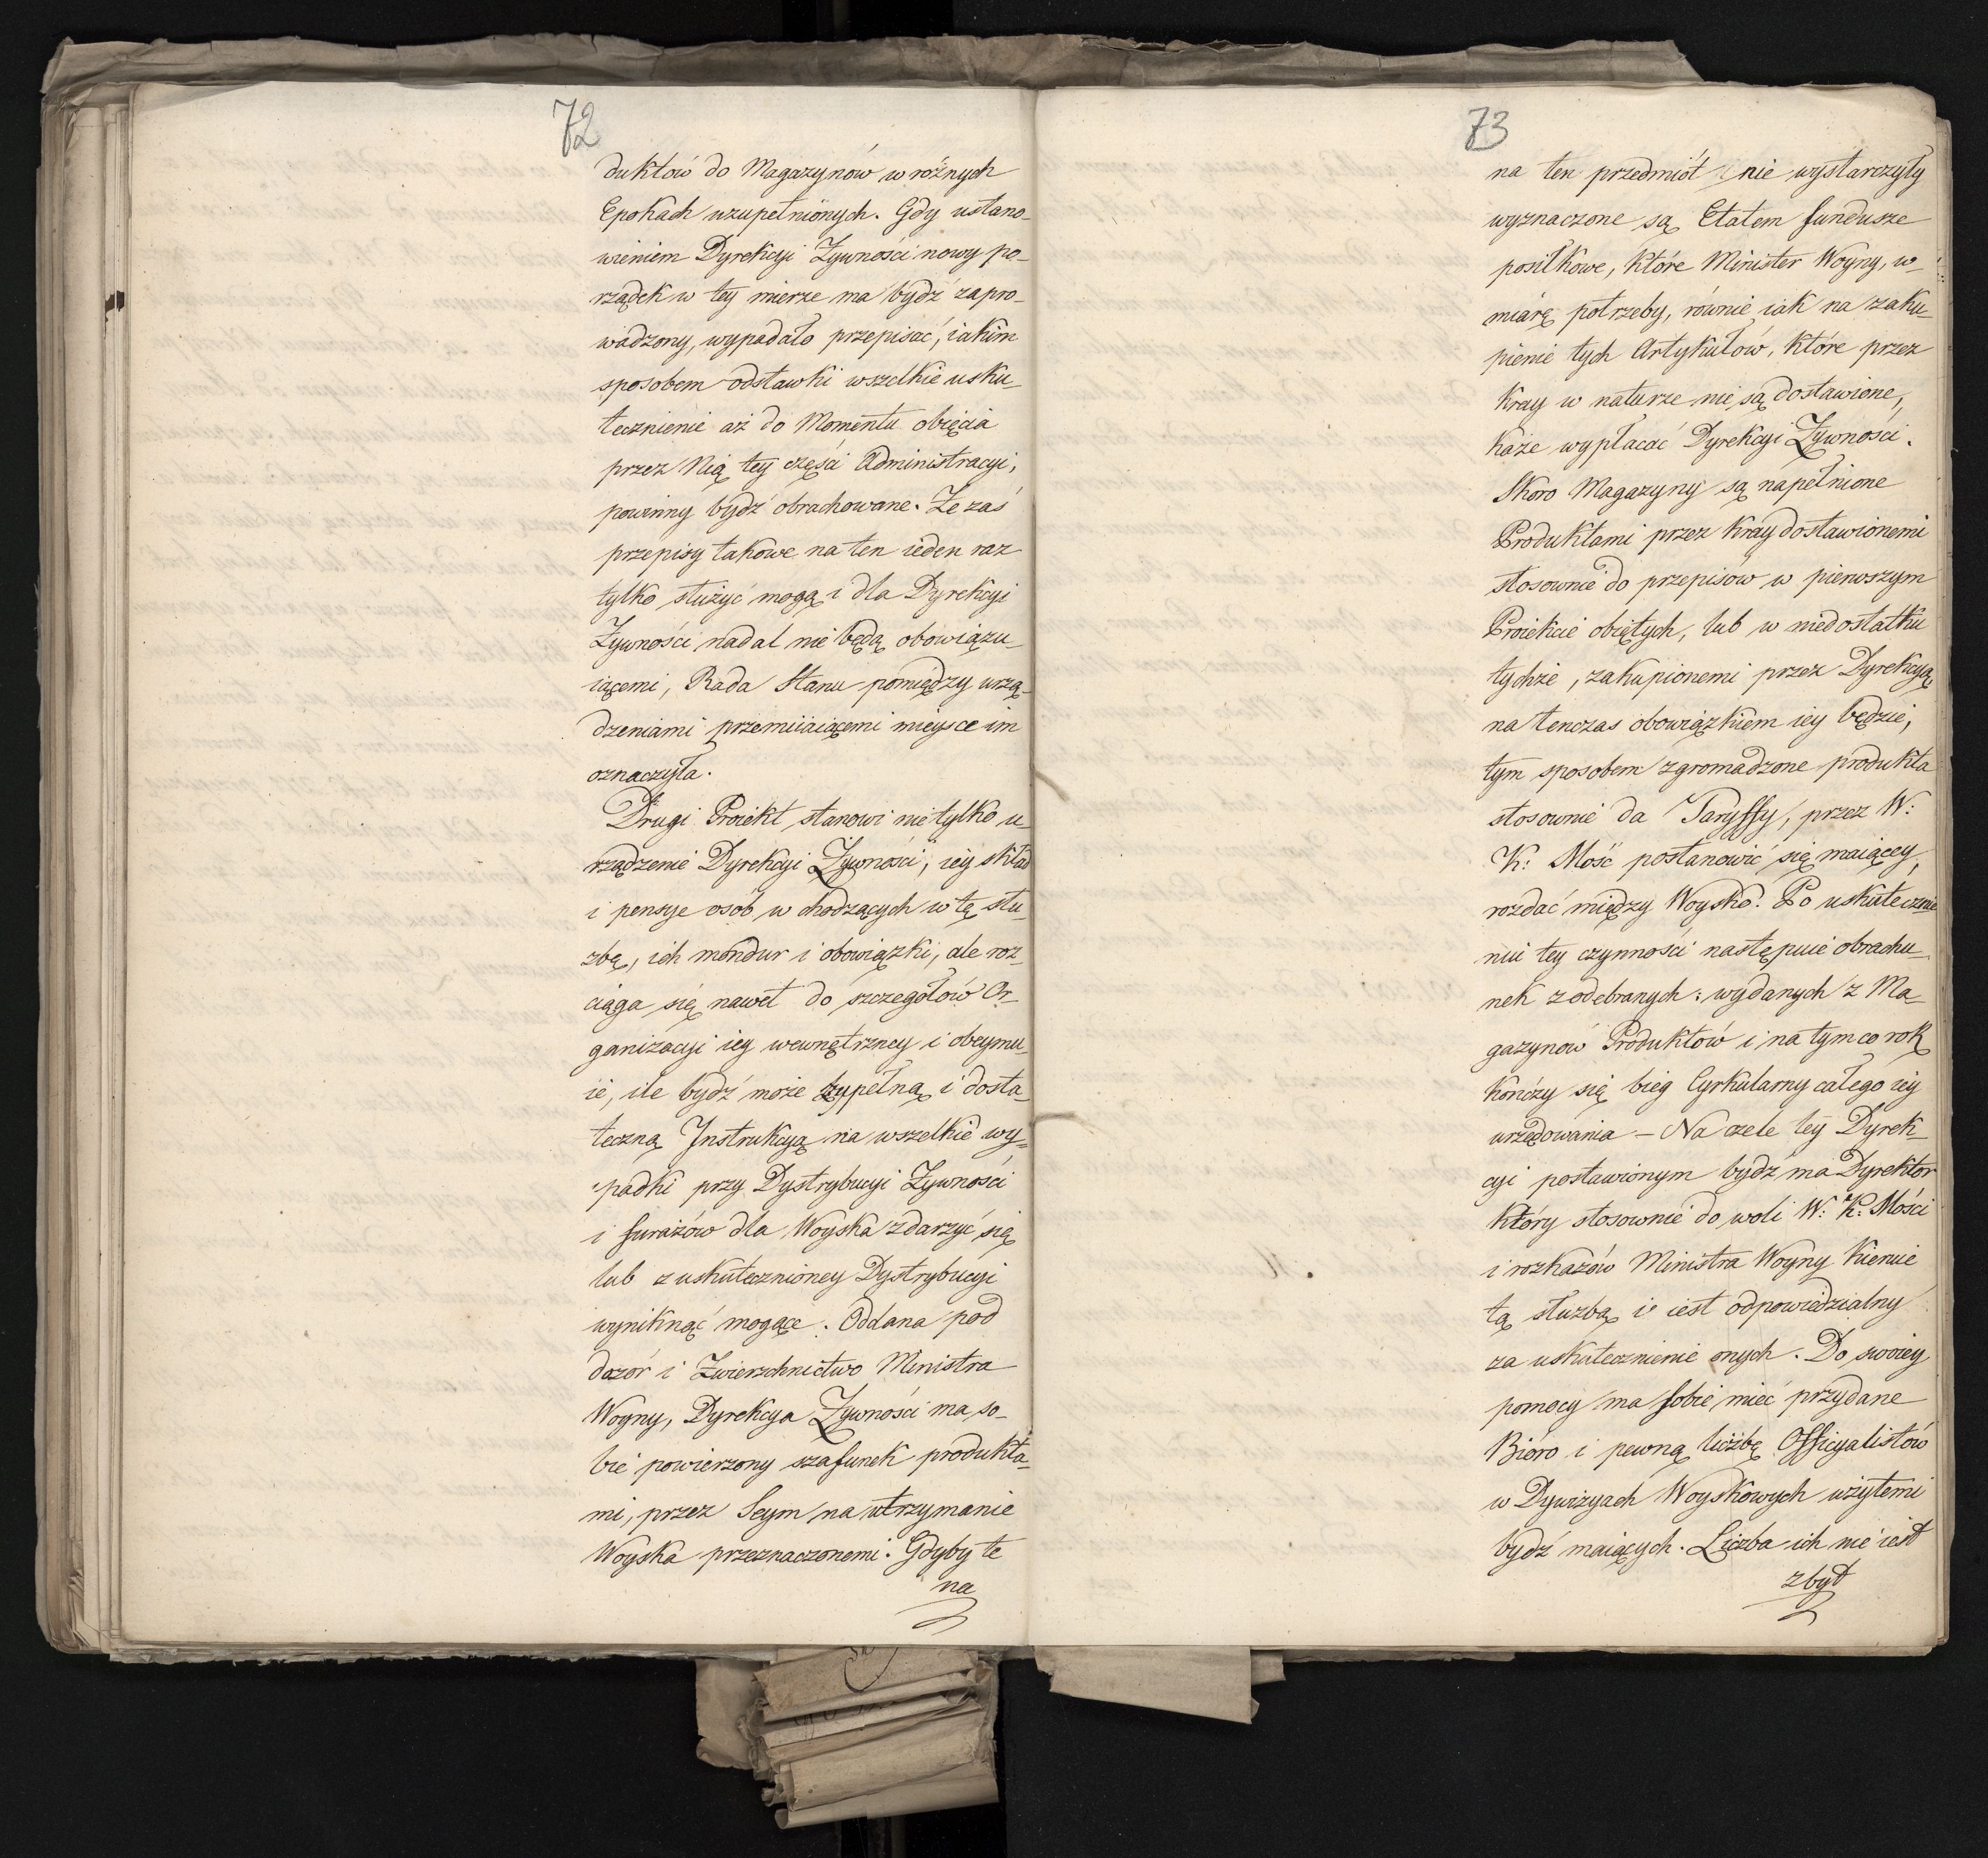 72
duktów do Magazynów w różnych
Epokach uzupełnionych. Gdy ustano-
wieniem Dyrekcyi Żywności nowy po-
rządek w tey mierze ma bydź zapro-
wadzony, wypadało przepisać, iakim
sposobem odstawki wszelkie usku-
tecznienie aż do Momentu obięcia
przez Nią tey części Administracyi,
powinny bydź obrachowane. Że zaś
przepisy takowe na ten ieden raz
tylko służyć mogą i dla Dyrekcyi
Żywności nadal nie będą obowiązu-
iącemi, Rada Stanu pomiędzy urzą-
dzeniami przemiiaiącemi mieysce im
oznaczyła.
Drugi Proiekt stanowi nie tylko u-
rządzenie Dyrekcyi Żywności, iey skład
i pensye osób wchodzących w tę słu-
żbę, ich mundur i obowiązki, ale roz-
ciąga się nawet do szczegółów Or-
ganizacyi iey wewnętrzney i obeymu-
ie, ile bydź może zupełną i dosta-
teczną Instrukcyą na wszelkie wy-
padki przy Dystrybucyi Żywności
i furażów dla Woyska zdarzyć się
lub z uskuteczonioney Dystrybucyi
wyniknąć mogące. Oddana pod
dozór i Zwierzchnictwo Ministra
Woyny, Dyrekcya Żywności ma so-
bie powierzony szafunek produkta-
mi, przez Seym na utrzymanie
Woyska przeznaczonemi. Gdyby te
na
73
na ten przedmiót nie wystarczyły
wyznaczone są Etatem fundusze
posiłkowe, które Minister Woyny, w
miarę potrzeby, równie iak na zaku-
pienie tych Artykułów, które przez
Kray w naturze nie są dostawione,
każe wypłacać Dyrekcyi Żywności.
Skoro Magazyny są napełnione
Produktami przez Kray dostawionemi
stosownie do przepisów w pierwszym
Proiekcie obiętych, lub w niedostatku
tychże, zakupionemi przez Dyrekcyą,
na tenczas obowiązkiem iey będzie,
tym sposobem zgromadzone produkta
stosownie da Taryffy, przez W:
K: Mość postanowić się maiącey,
rozdać między Woysko. Po uskutecznie
niu tey czynności następuie obrachu-
nek z odebranych: wydanych z Ma-
gazynów Produktów i na tym co rok
kończy się bieg Cyrkularny całego iey
urzędowania – Na czele tey Dyrek-
cyi postawionym bydź ma Dyrektor
który stosownie do woli W: K: Mości
i rozkazów Ministra Woyny kieruie
tą służbą i iest odpowiedzialny
za uskutecznienie onych. Do swoiey
pomocy ma sobie mieć przydane
Bióro i pewną liczbę Officyalistów
w Dywizyach Woyskowych użytemi
bydź maiących. Liczba ich nie iest
zbyt